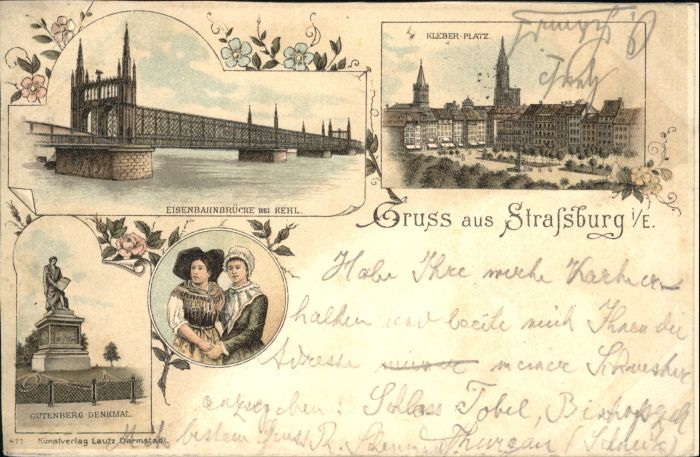 KLEBER-PLATZ
EISENBAHNBRÜCKE BEI KEHL.
Gruss aus Straſsburg i/E.
Habe Ihre werthe Karte er-
halten und beeile mich Ihnen die
Adresse meiner Schwester
anzugeben! Schloss Tobel, Bischofszell
Thurgau (Schweiz)
Mit bestem Gruss R.
GUTENBERG DENKMAL
423 Kunstverlag Lautz Darmstadt.